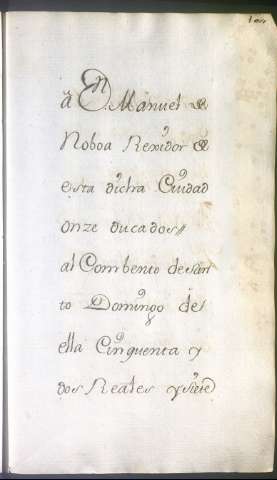 â Dn. Manuel de
Noboa Rexidor de
esta dicha Ciudad
onze ducados//
al Combento de San
to Domingo del
ella Cinquenta y
dos Reales y siete